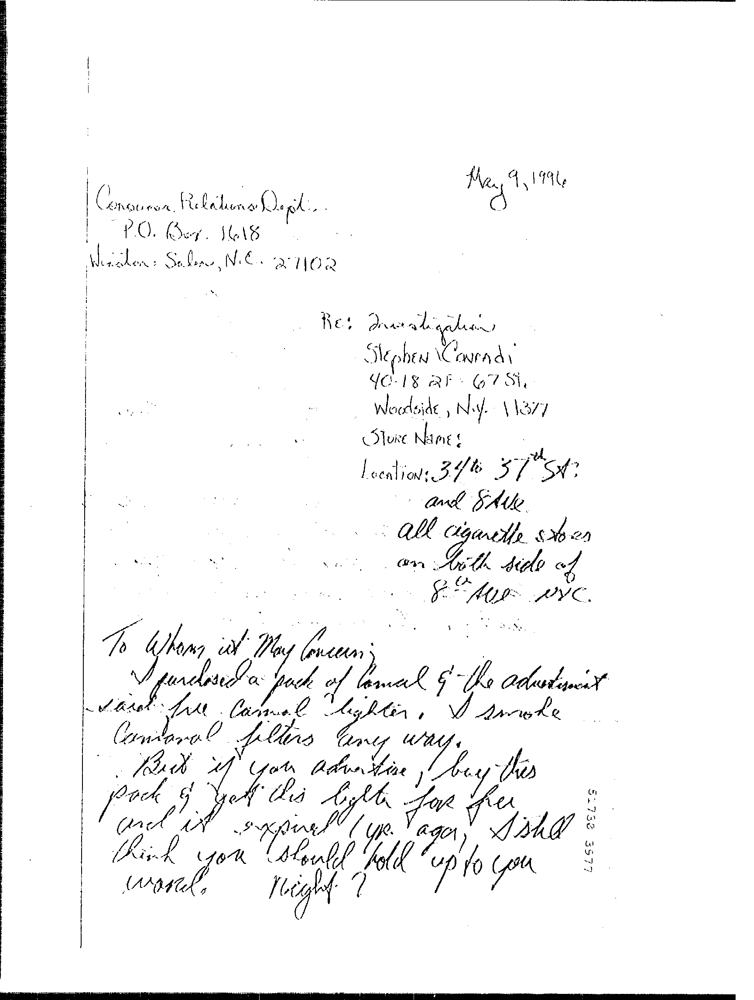 May 9, 1996
Consumer Relations Dept.
P.O. Box. 1618
Winston-Salem, N.C. 27102
Re: Investigation
Stephen Conradi
40-18 2F 67 St.
Woodside, N.Y. 11377
Store Name:
Location: 34 to 37th St.
and 8 Ave
all cigarette stoes
on both side of
8th Ave NYC.
To Whom it May Concern;
I purchased a pack of Camel & the advertisment
said free Camal lighter. I smoke
filters any way.
But if you advertise, buy this
pack & get this light for free
and it expired 1 yr. ago, I still
think you should hold up to you
word. Right?
51738 3577